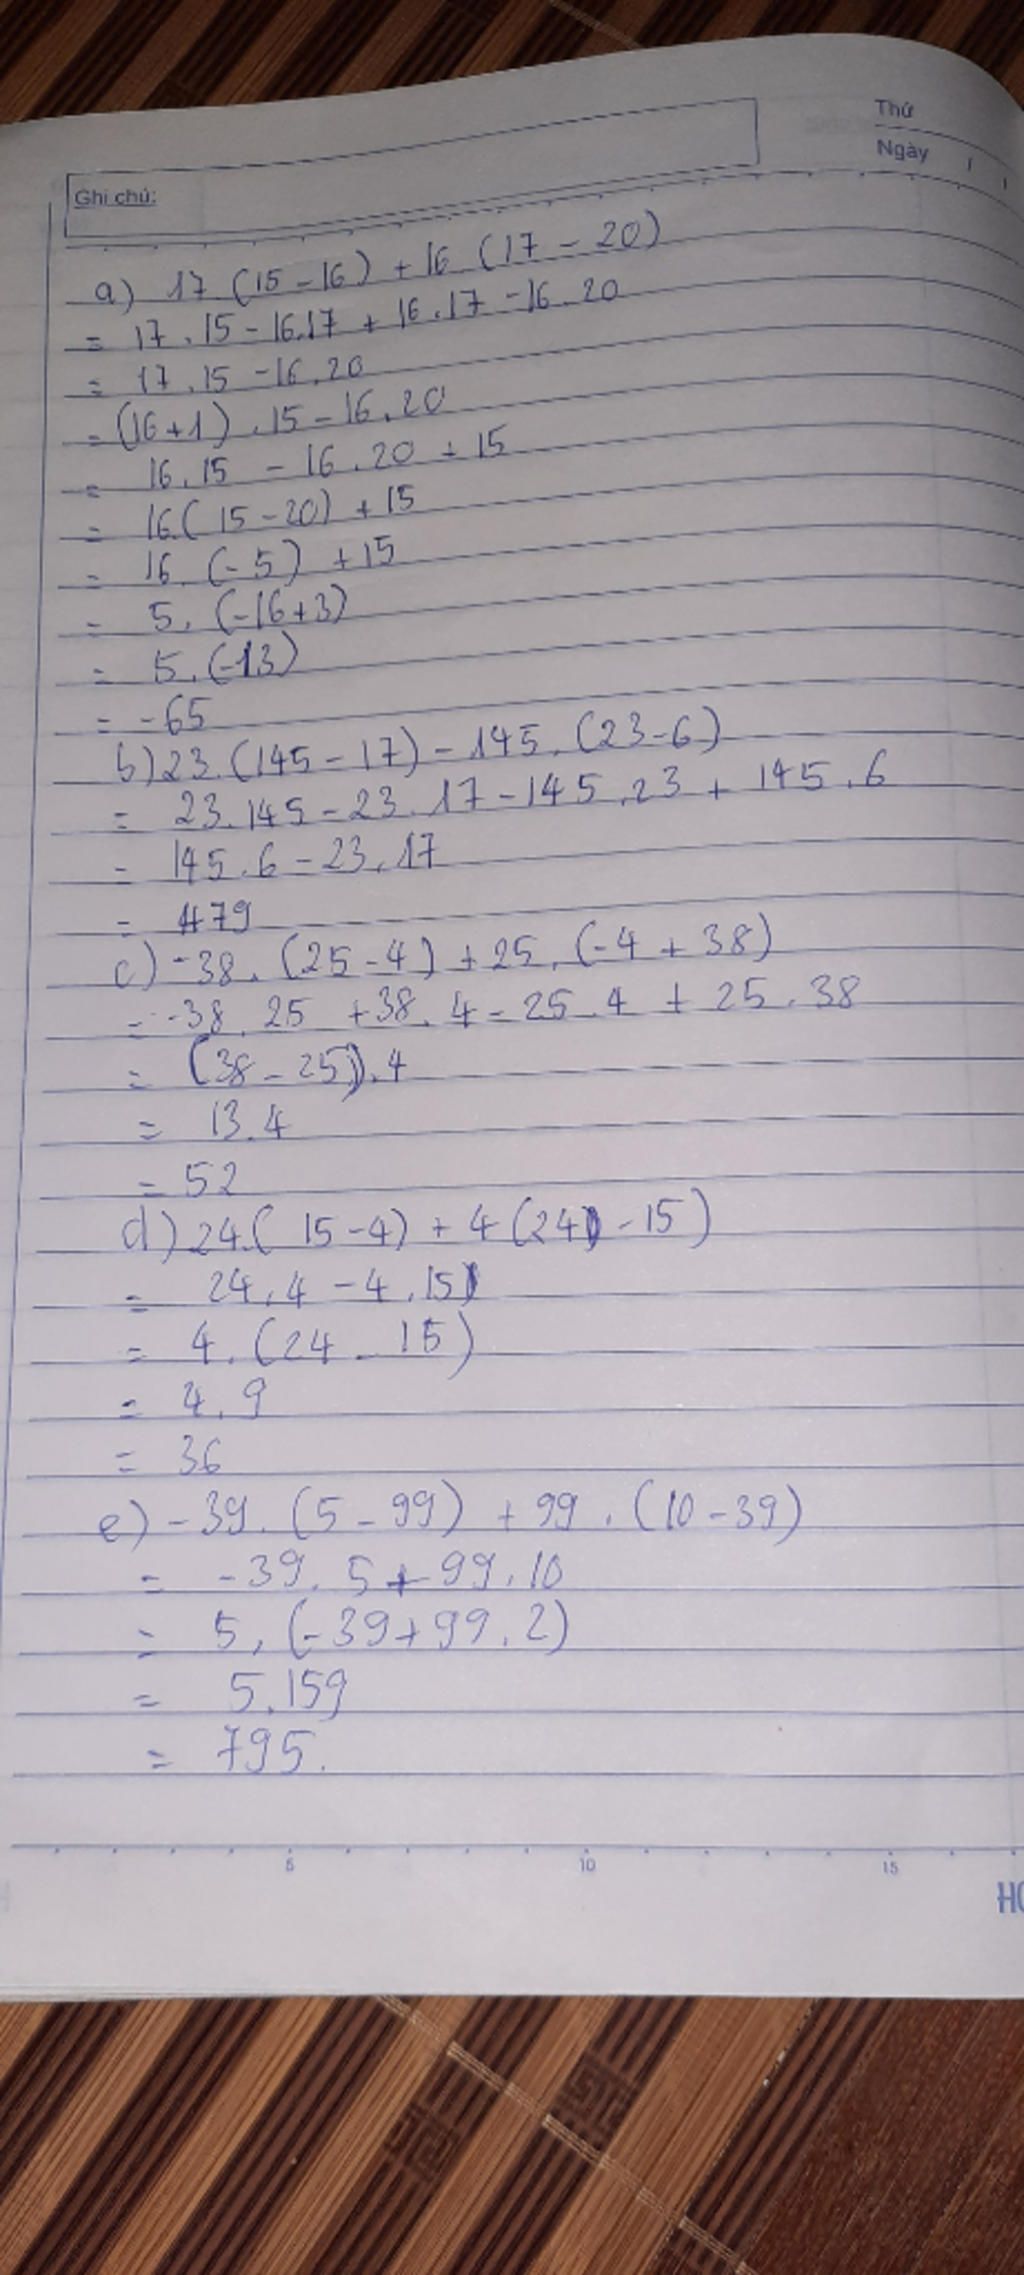 Thứ
Ngày
Ghi chú:
a) 17 (15 - 16) + 16 (17 - 20)
= 17 . 15 - 16.17 + 16.17 - 16.20
= 17.15 - 16.20
= (16+1) . 15 - 16.20
= 16.15 - 16.20 + 15
= 16.(15-20) + 15
= 16.(-5) + 15
= 5.(-16+3)
= 5.(-13)
= -65
b) 23.(145 - 17) - 145.(23-6)
= 23.145 - 23.17 - 145.23 + 145.6
= 145.6 - 23.17
= 479
c) -38.(25-4) + 25.(-4 + 38)
= -38.25 + 38.4 - 25.4 + 25.38
= (38 - 25).4
= 13.4
= 52
d) 24.(15-4) + 4(24 - 15)
= 24.4 - 4.15
= 4.(24 - 15)
= 4.9
= 36
e) -39.(5 - 99) + 99.(10 - 39)
= -39.5 + 99.10
= 5.(-39+99.2)
= 5.159
= 795.
5 10 15